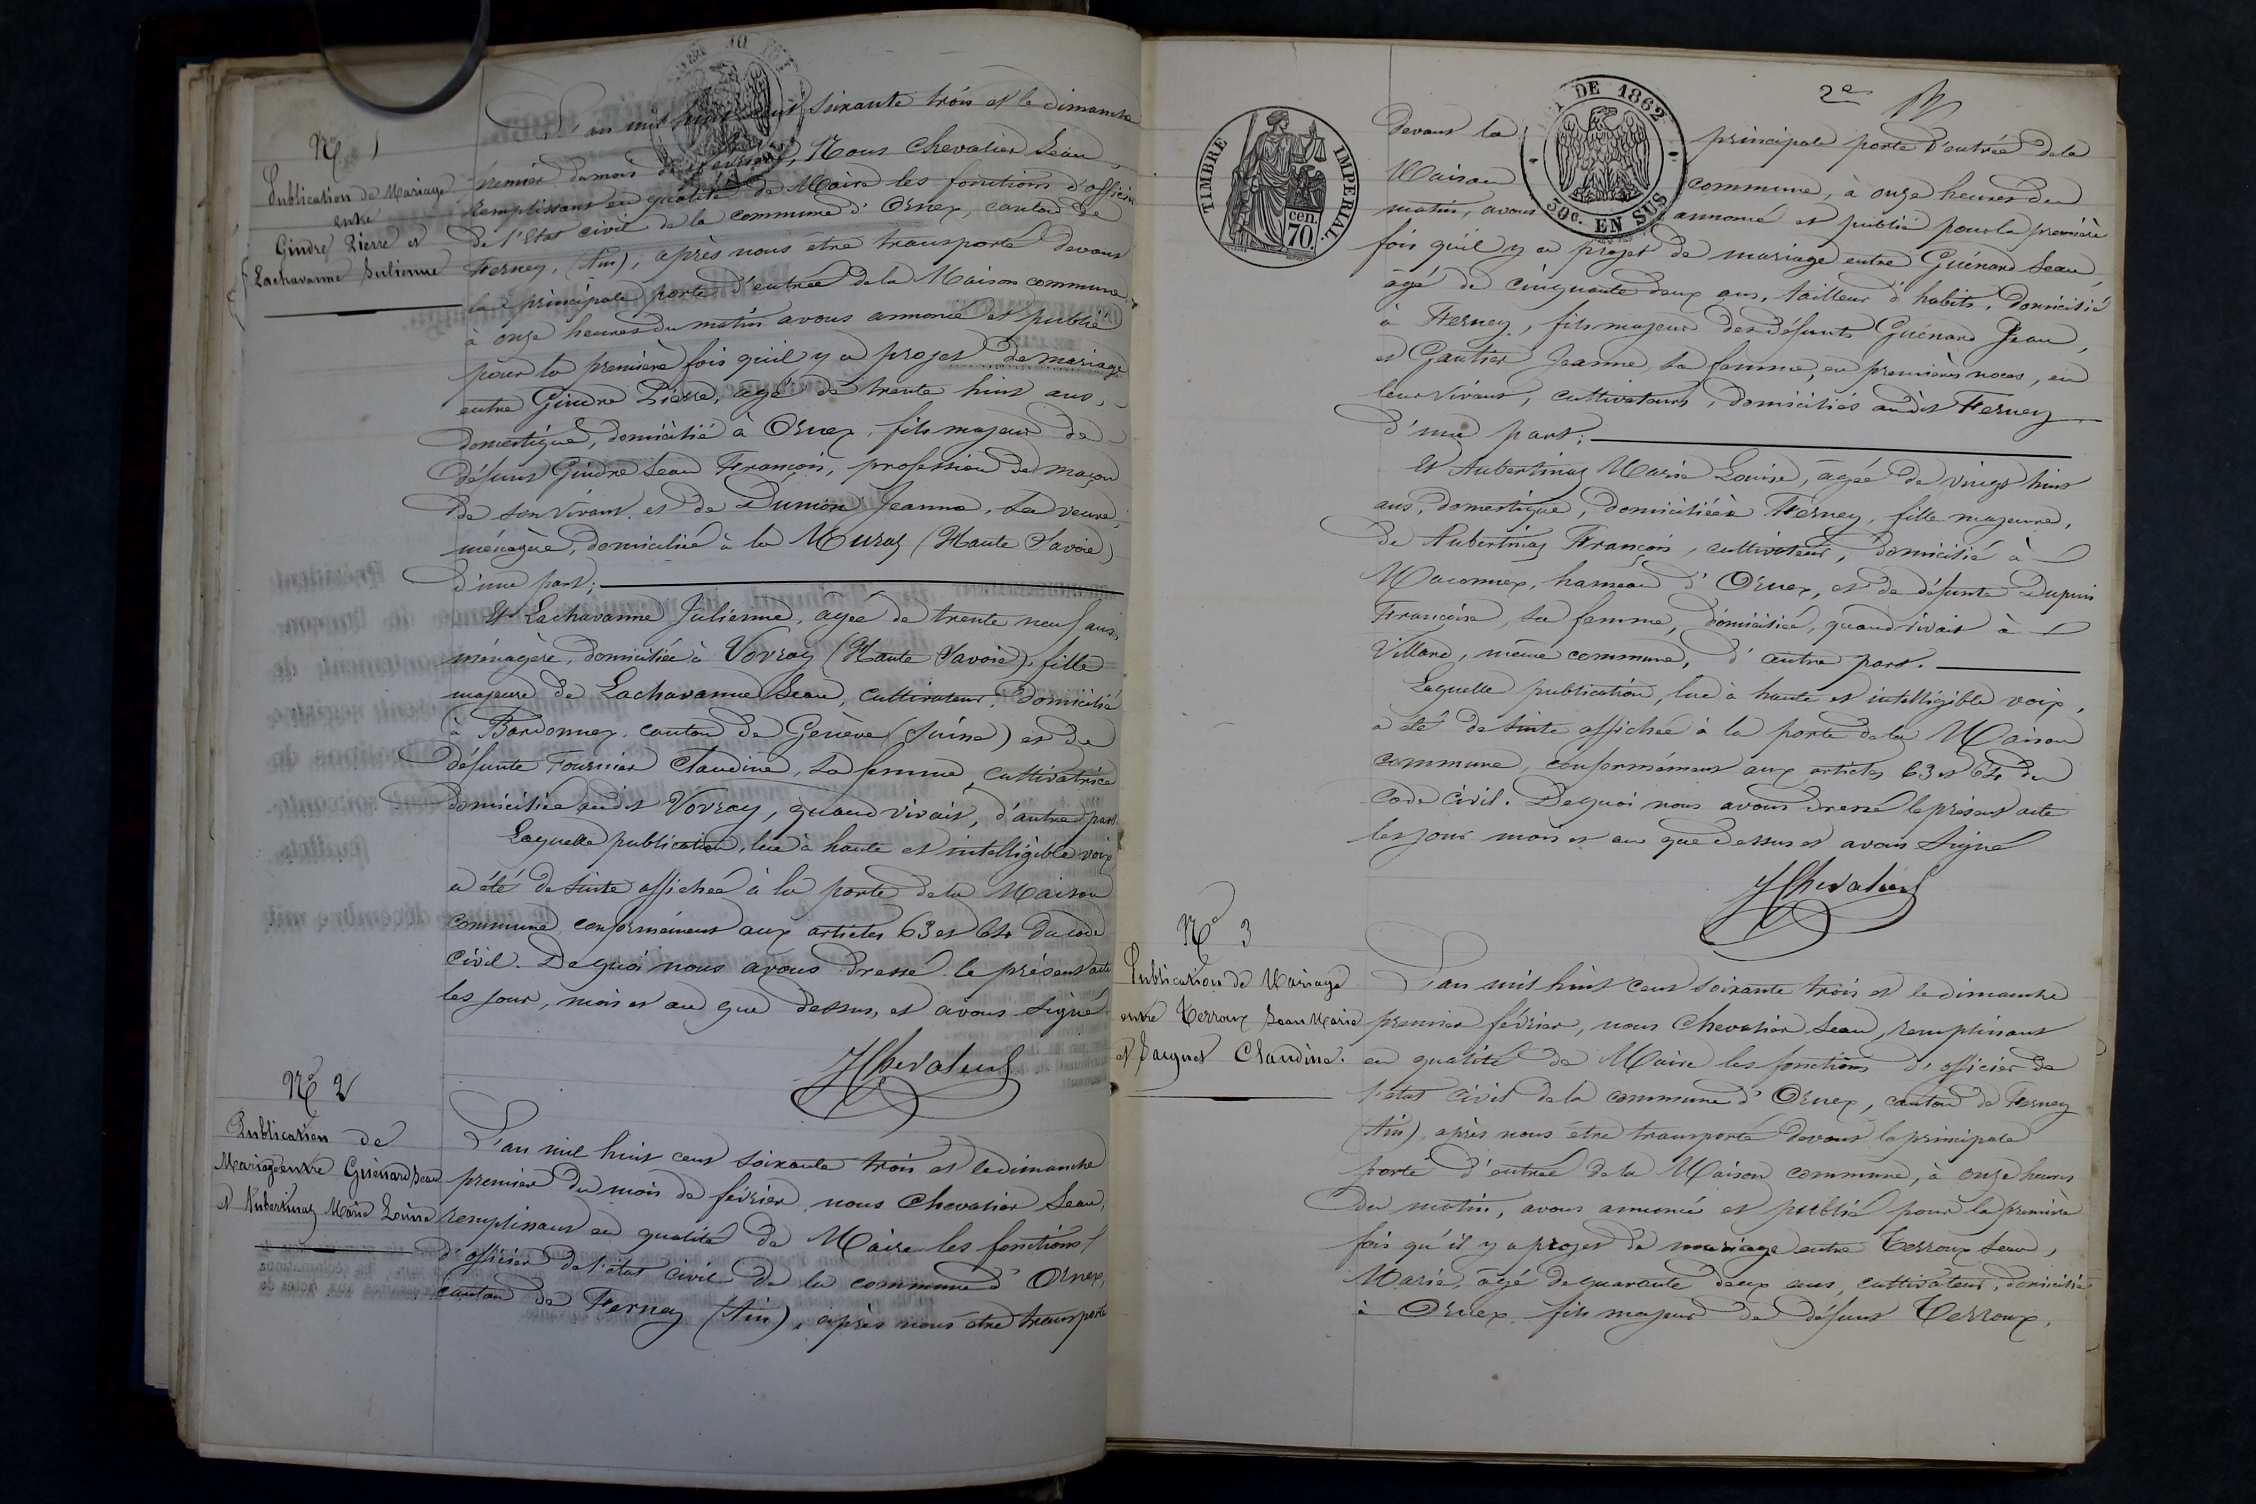 Nº 1
Publication de Mariage
entre
Gindre Pierre et
Lachavanne Julienne
L'an mil huit cent soixante trois et le dimanche
premier du mois de février, Nous Chevalier Jean
remplissant en qualité de Maire les fonctions d'officier
de l'Etat civil de la commune d'Ornex, canton de
Ferney, (Ain), après nous être transporté devant
la principale porte d'entrée de la Maison commune
à onze heures du matin avons annoncé et publié
pour la première fois qu'il y a projet de mariage
entre Gindre Pierre, âgé de trente huit ans,
domestique, domicilié à Ornex, fils majeur de
défunt Gindre Jean François, profession de maçon
de son vivant et de Dunion Jeanne, sa veuve,
ménagère, domiciliée à la Muraz (Haute Savoie)
d'une part;
Et Lachavanne Julienne, agée de trente neuf ans,
ménagère, domiciliée à Vovray (Haute Savoie), fille
majeure de Lachavanne Jean, cultivateur, domicilié
à Bardonnex, canton de Genève (Suisse) et de
défunte Fournier Claudine, sa femme, cultivatrice
domiciliée audit Vovray, quand vivait, d'autre part
Laquelle publication, lue à haute et intelligible voix
a été de suite affichée à la porte de la Maison
commune, conformément aux articles 63 et 64 du code
civil. De quoi nous avons dressé le présent acte
les jour, mois et an que dessus, et avons signé
JChevalier
Nº 2
Publication de
Mariage entre Guénard Jean
et Aubertinaz Marie Louise
L'an mil huit cent soixante trois et le dimanche
premier du mois de février, nous Chevalier Jean,
remplissant en qualité de Maire les fonctions
d'officier de l'état civil de la commune d'Ornex,
canton de Ferney (Ain), après nous être transporté
2e
TIMBRE IMPERIAL.
cen.
70.
DE 1862
50c. EN SUS
devant la principale porte d'entrée de la
Maison commune, à onze heures du
matin, avons annoncé et publié pour la première
fois qu'il y a projet de mariage entre Guénard Jean
âgé de cinquante deux ans, tailleur d'habits, domicilié
à Ferney, fils majeur des défunts Guénard Jean,
et Gautier Jeanne sa femme, en premières noces, en
leur vivant, cultivateurs, domiciliés audit Ferney
d'une part;
Et Aubertinaz Marie Louise, âgée de vingt huit
ans, domestique, domiciliée à Ferney, fille majeure,
de Aubertinaz François, cultivateur, domicilié à
Maconnex, hameau d'Ornex, et de défunte Dupuis
Françoise, sa femme, domiciliée, quand vivait à
Villard, même commune, d'autre part.
Laquelle publication, lue à haute et intelligible voix,
a été de suite affichée à la porte de la Maison
commune, conformément aux articles 63 et 64 du
code civil. De quoi nous avons dressé le présent acte
les jour mois et an que dessus et avons signé
JChevalier
Nº 3
Publication de Mariage
entre Terroux Jean Marie
et Jacquet Claudine.
L'an mil huit cent soixante trois et le dimanche
premier février, nous Chevalier Jean, remplissant
en qualité de Maire les fonctions d'officier de
l'état civil de la commune d'Ornex, canton de Ferney
(Ain), après nous être transporté devant la principale
porte d'entrée de la Maison commune, à onze heures
du matin, avons annoncé et publié pour la première
fois qu'il y a projet de mariage entre Terroux Jean,
Marie, âgé de quarante deux ans, cultivateur, domicilié
à Ornex, fils majeur de défunt Terroux,